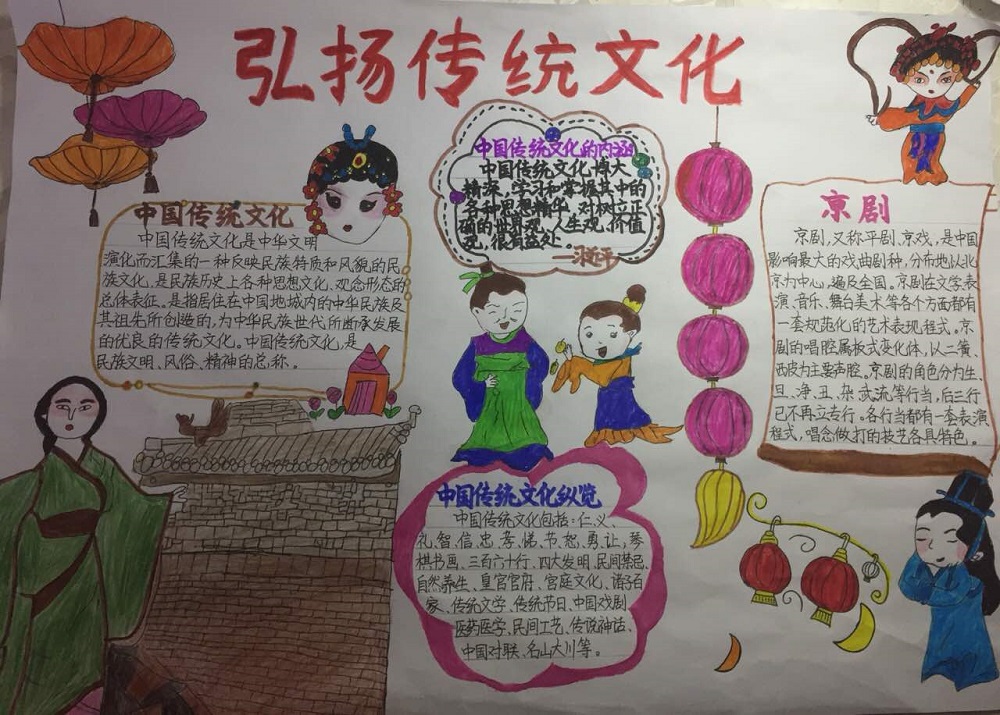 弘扬传统文化
中国传统文化
中国传统文化是中华文明
演化而汇集的一种反映民族特质和风貌的民
族文化,是民族历史上各种思想文化、观念形态的
总体表征。是指居住在中国地域内的中华民族及
其祖先所创造的,为中华民族世代所断承发展
的优良的传统文化。中国传统文化,是
民族文明、风俗、精神的总称。
中国传统文化的内涵
中国传统文化,博大
精深,学习和掌握其中的
各种思想精华,对树立正
确的世界观、人生观、价值
观,很有益处。
中国传统文化纵览
中国传统文化包括:仁、义、
礼、智、信、忠、孝、悌、节、恕、勇、让,琴
棋书画、三百六十行、四大发明、民间禁忌、
自然养生、皇宫官府、宫庭文化、诸子百
家、传统文学、传统节日、中国戏剧、
医药医学、民间工艺、传说神话、
中国对联、名山大川等。
京剧
京剧,又称平剧、京戏,是中国
影响最大的戏曲剧种,分布地以北
京为中心,遍及全国。京剧在文学、表
演、音乐、舞台美术等各个方面都有
一套规范化的艺术表现程式。京
剧的唱腔属板式变化体,以二簧、
西皮为主要声腔。京剧的角色分为生、
旦、净、丑、杂、武、流等行当,后三行
已不再立专行。各行当都有一套表演
程式,唱念做打的技艺各具特色。